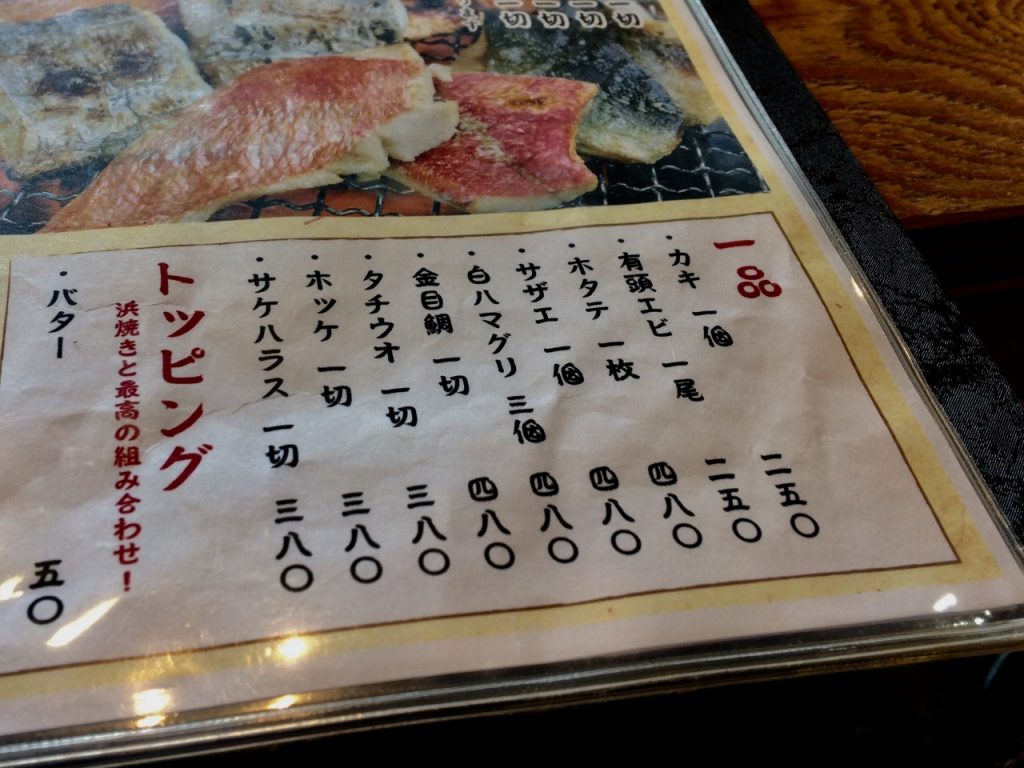 一切
一切
一切
一切
一品
・カキ 一個 二五〇
・有頭エビ 一尾 二五〇
・ホタテ 一枚 四八〇
・サザエ 一個 四八〇
・白ハマグリ 三個 四八〇
・金目鯛 一切 四八〇
・タチウオ 一切 三八〇
・ホッケ 一切 三八〇
・サケハラス 一切 三八〇
トッピング
浜焼きと最高の組み合わせ！
・バター 五〇